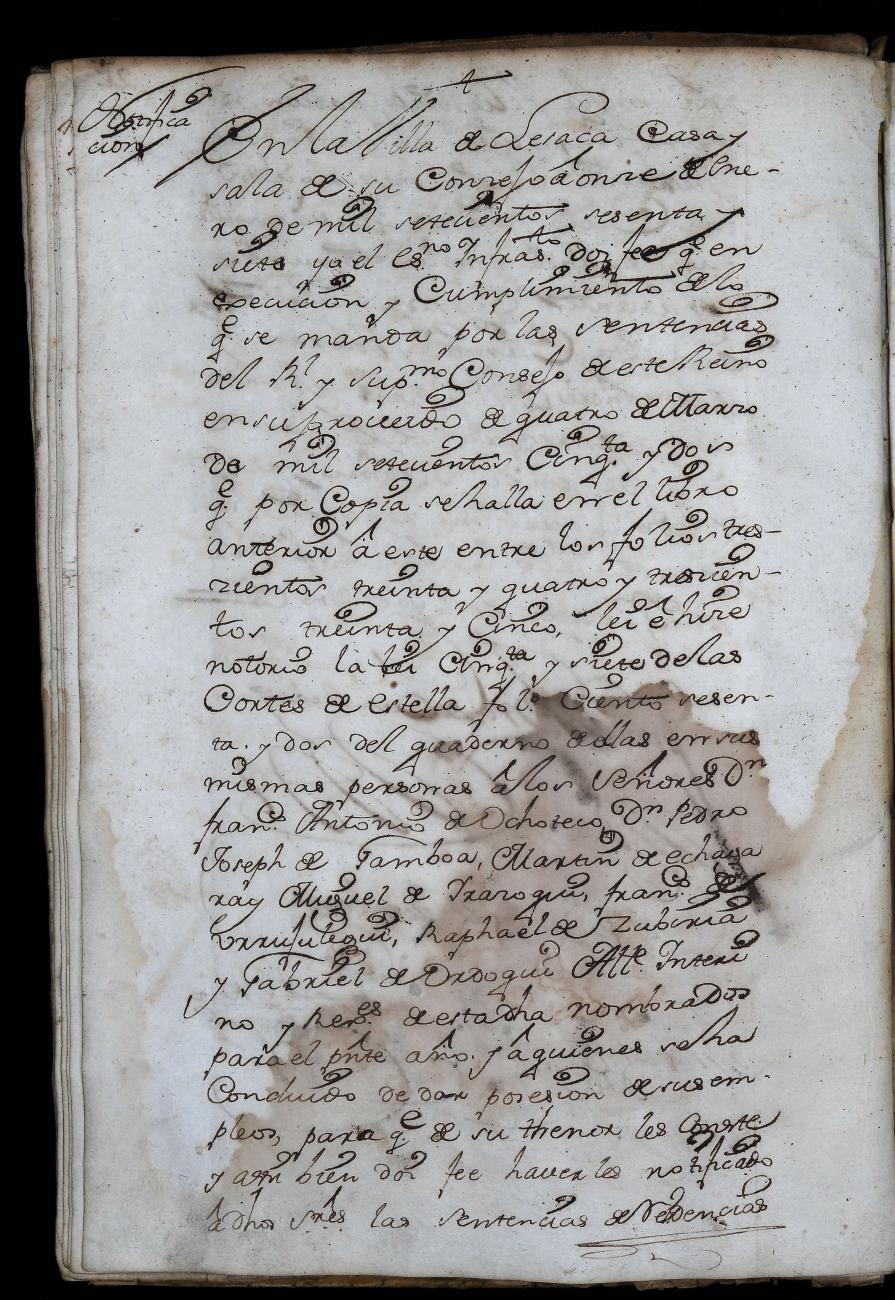 Notifica
cion
En la Villa de Lesaca Casa y
sala de su Consejo â onze de Ene-
ro de mil setecientos sesenta y
siete yo el Es.no Infras.to doi fee q.e en
execucion y Cumplimiento de lo
q.e se manda por las sentencias
del R.l y sup.mo Consejo de este Reino
en su proveido de quatro de Marzo
de mil setecientos Cinq.ta y dos
q.e por Copia se halla en el libro
anterior â este entre los folios tres-
zientos treinta y quatro y trescien-
tos treinta y Cinco, lei è hize
notorio la lei Cinq.ta y siete de las
Cortes de Estella fol.o Ciento sesen-
ta y dos del quaderno de ellas en sus
mismas personas â los Señores Dn
fran.co Antonio de Ochoteco, Dn Pedro
Joseph de Gamboa, Martin de echaga
ray Miguel de Yrazoqui, fran.co de
Urrutegui, Raphael de Zubiria
y Gabriel de Ordoqui Alle. Interi
no y Rex.es de esta dha nombrados
para el pnte año. y â quienes se ha
Concluido de dar posesion de sus em-
pleos, para q.e de su thenor les Conste.
y atn bien doi fee haverles notificado
â dhos Sres las sentencias de Residencias